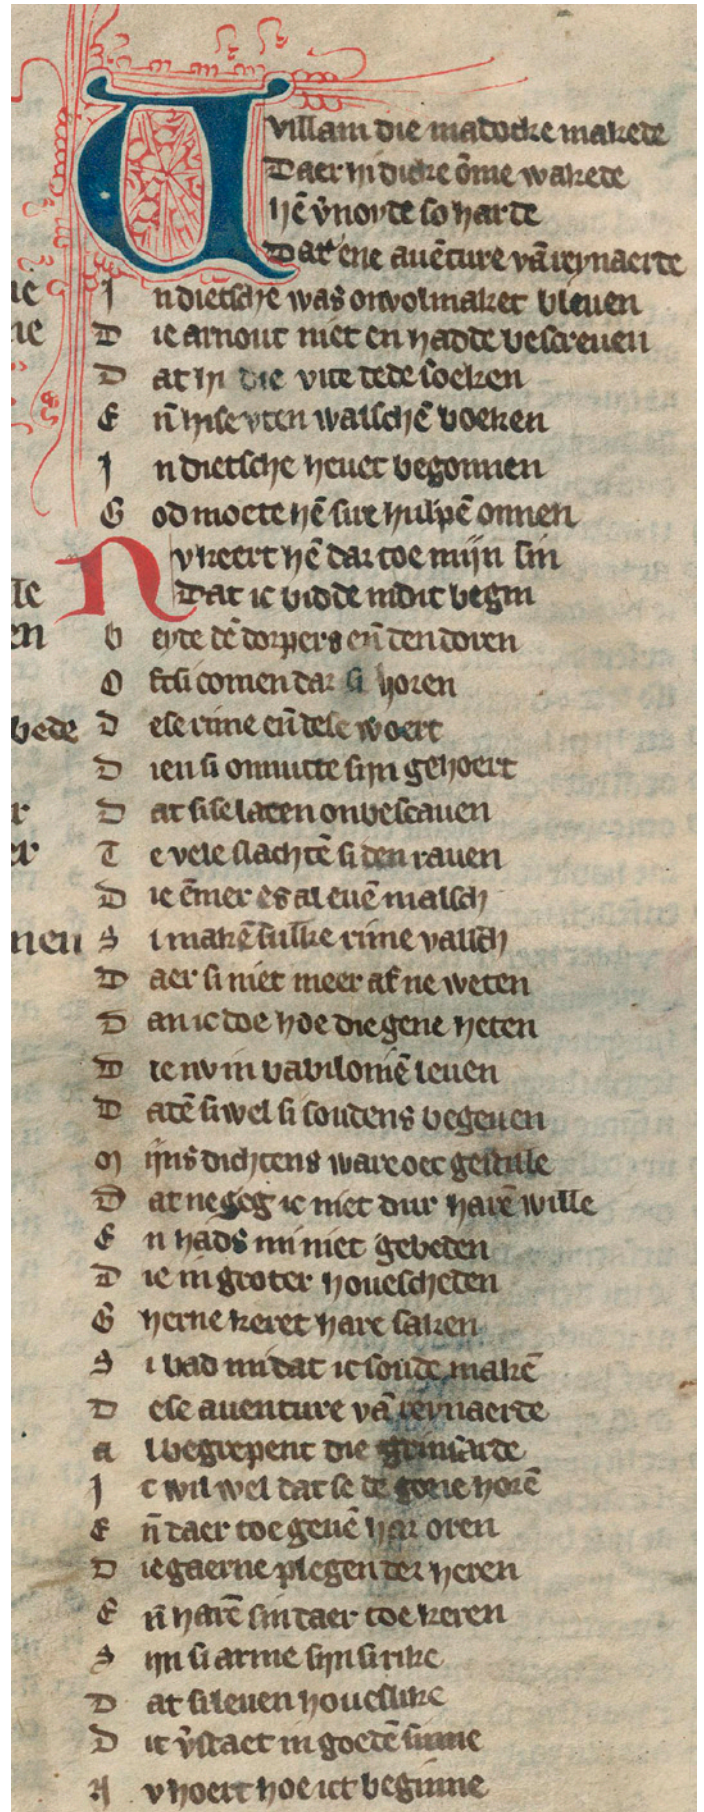 Uvillam die madocke makede
Daer hi dicke ōme wakede
hē v̄norde so harde
Dat ene auēture vā reynaerde
In dietsche was onvolmaket bleuen
Die arnout niet en hadde bescreuen
Dat hi die vite dede soeken
En̄ hise vten walschē boeken
In dietsche heuet begonnen
God moete hē sire hulpē onnen
Nv keert hē dar toe mijn sin
Dat ic bidde in dit begin
beyde dē dorpers en̄ den doren
Ofte si comen dar si horen
Dese rime en̄ dese woert
Die n si onnutte sijn gehoert
Dat sise laten onbescauen
Te vele slachtē si den rauen
Die ēmer es al euē malsch
Si makē sulke rime valsch
Daer si niet meer af ne weten
Dan ic doe hoe die gene heten
Die nv in babiloniē leuen
Dadē si wel si soudens begeuen
Mijns dichtens ware oec gestille
Dat ne seg ic niet dur harē wille
En hads mi niet gebeden
Die in groter houescheden
Gherne keret hare saken
Si bad mi dat ic soude makē
Dese auenture vā reynaerde
Al begrepent die
Ic wil wel dat se de gone horē
En̄ daer toe geuē har oren
Die gaerne plegen der heren
En̄ harē sin daer toe keren
Sijn si arme sijn si rike
Dat si leuen houeslike
Dit v̄staet in goedē sinne
Nv hoert hoe ict beginne